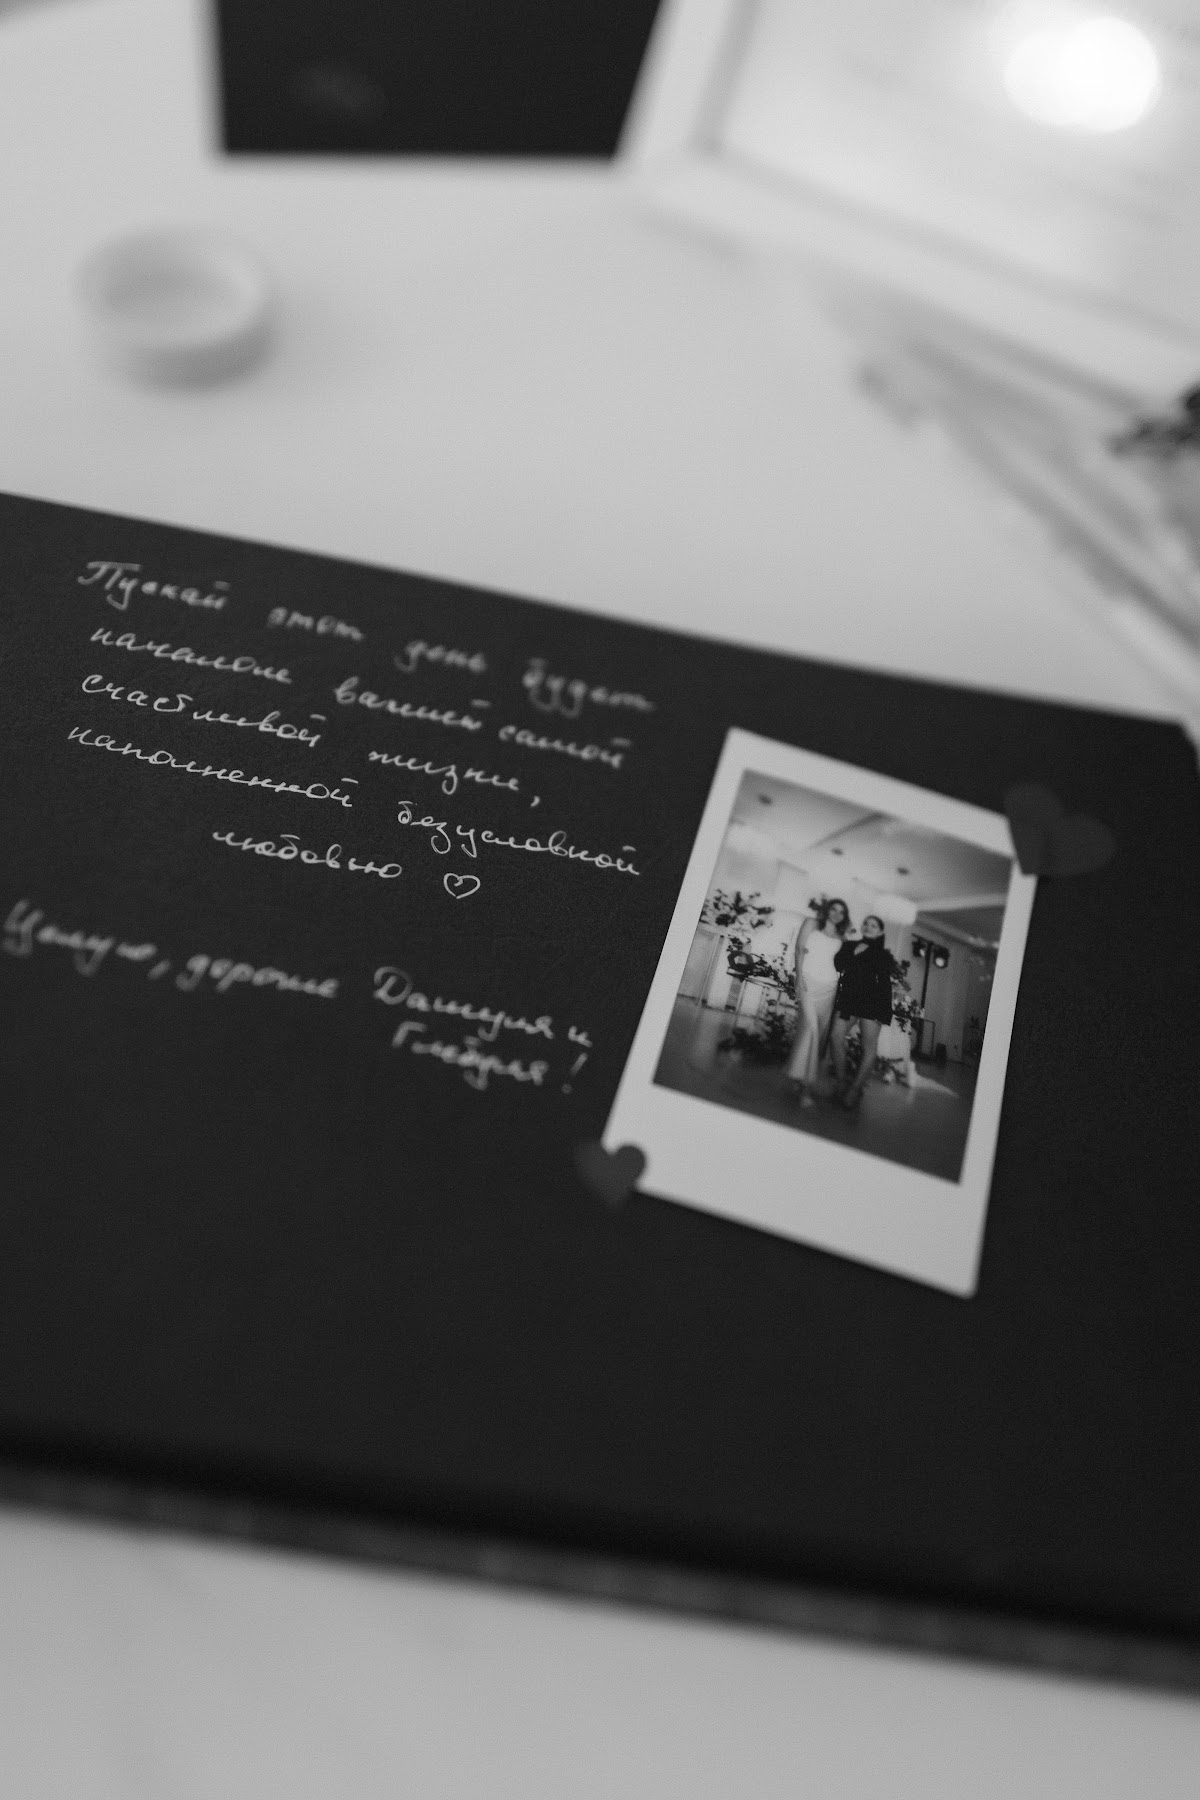 Пускай этот день будет
началом вашей самой
счастливой жизни,
наполненной безусловной
любовью ♡
Целую, дорогие Дашуля и
Глебуля!